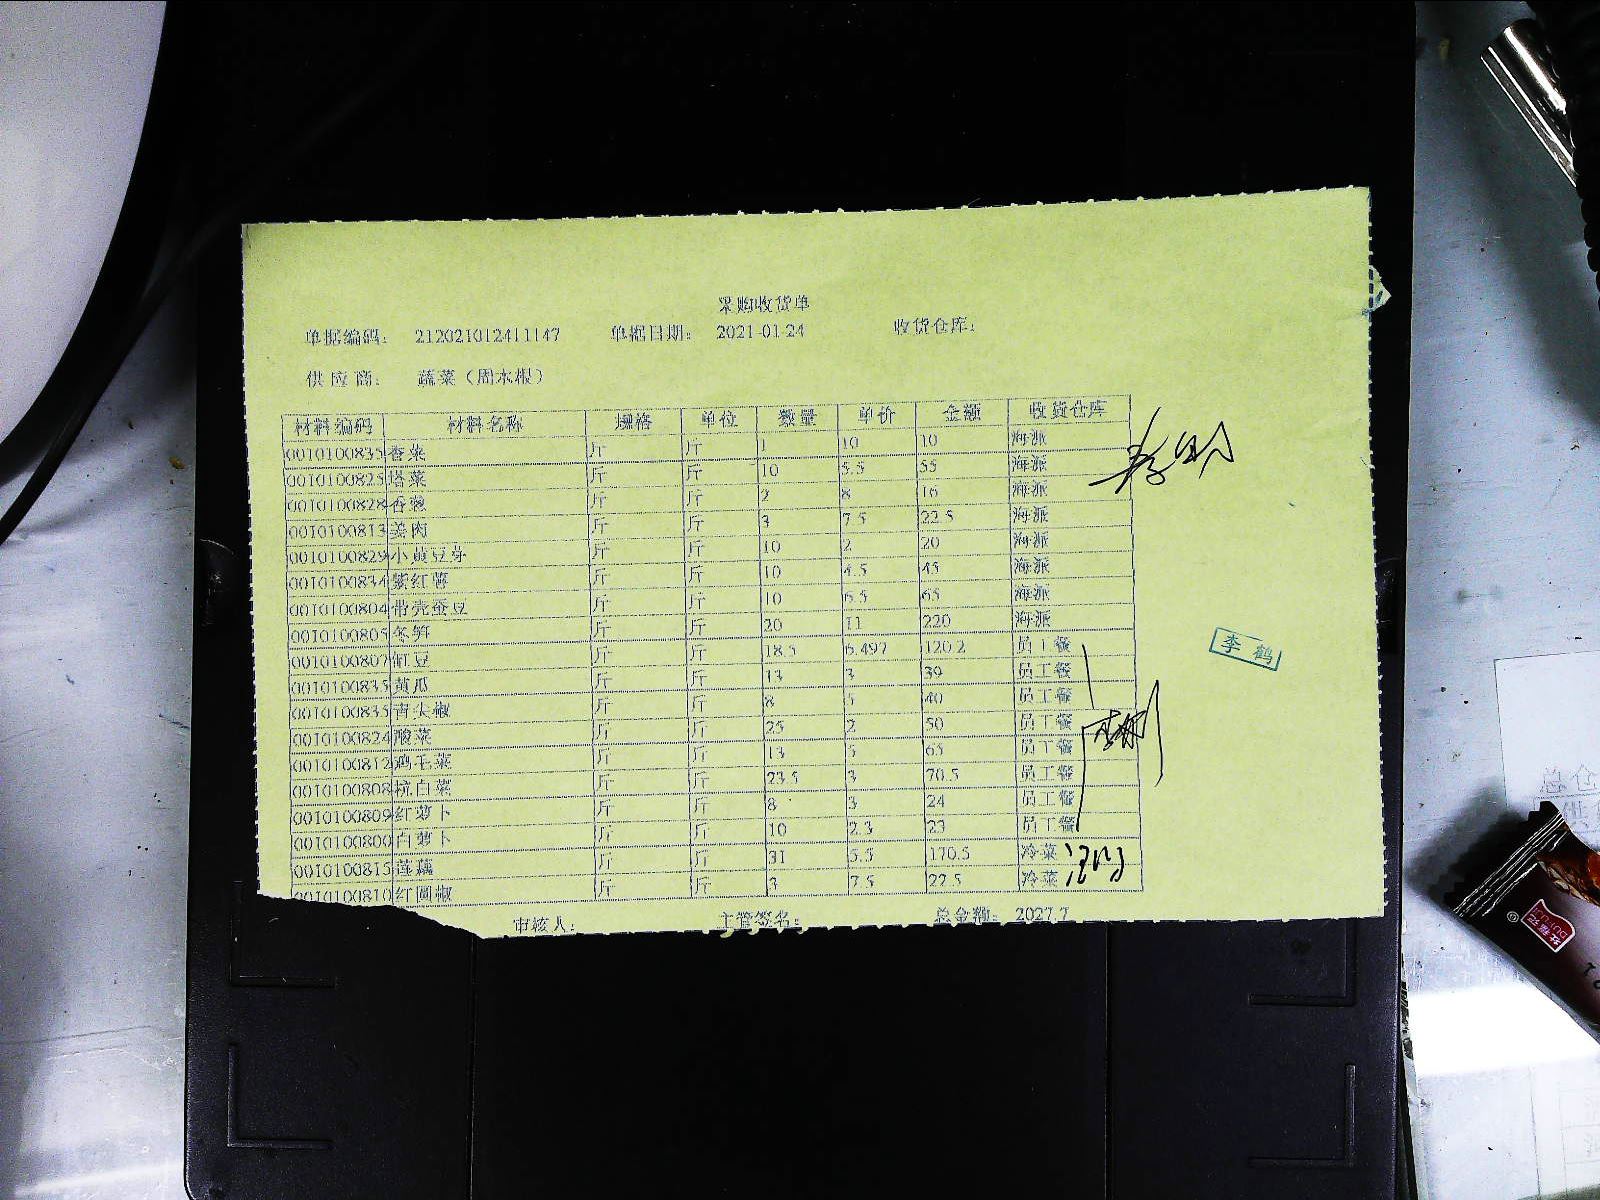 采购收货单
单据编码： 212021012411147 单据日期： 2021-01-24 收货仓库：
供应商： 蔬菜（周水根）
材料编码 材料名称 规格 单位 数量 单价 金额 收货仓库
0010100835 香菜 斤 斤 1 10 10 海派
0010100825 塔菜 斤 斤 10 5.5 55 海派
0010100828 香葱 斤 斤 2 8 16 海派
0010100813 姜肉 斤 斤 3 7.5 22.5 海派
0010100829 小黄豆芽 斤 斤 10 2 20 海派
0010100834 紫红薯 斤 斤 10 4.5 45 海派
0010100804 带壳蚕豆 斤 斤 10 6.5 65 海派
0010100805 冬笋 斤 斤 20 11 220 海派
0010100807 豇豆 斤 斤 18.5 6.497 120.2 员工餐
0010100835 黄瓜 斤 斤 13 3 39 员工餐
0010100835 青尖椒 斤 斤 8 5 40 员工餐
0010100824 酸菜 斤 斤 25 2 50 员工餐
0010100812 鸡毛菜 斤 斤 13 5 65 员工餐
0010100808 杭白菜 斤 斤 23.5 3 70.5 员工餐
0010100809 红萝卜 斤 斤 8 3 24 员工餐
0010100800 白萝卜 斤 斤 10 2.3 23 员工餐
0010100815 莲藕 斤 斤 31 5.5 170.5 冷菜
0010100810 红圆椒 斤 斤 3 7.5 22.5 冷菜
审核人： 主管签名： 总金额： 2027.7
李鹤
总仓